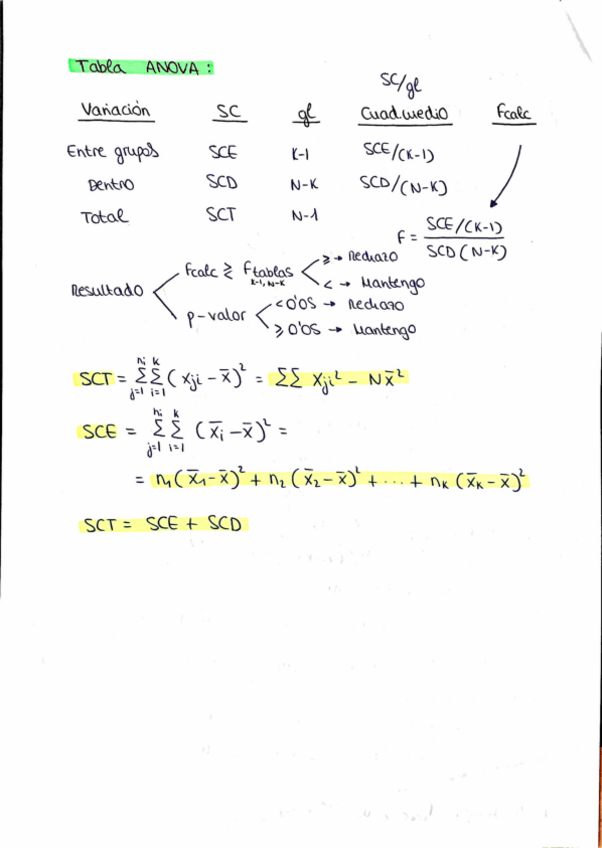 Tabla ANOVA:
SC/gl
Variación SC gl Cuad.medio Fcalc
Entre grupos SCE K-1 SCE/(K-1)
Dentro SCD N-K SCD/(N-K)
Total SCT N-1
F = SCE/(K-1) / SCD(N-K)
Resultado
Fcalc ≷ Ftablas K-1, N-K
≥ → Rechazo
< → Mantengo
p-valor
< 0'05 → Rechazo
≥ 0'05 → Mantengo
SCT = Σ_{j=1}^{ni} Σ_{i=1}^{k} (xji - x̄)² = ΣΣ xji² - Nx̄²
SCE = Σ_{j=1}^{ni} Σ_{i=1}^{k} (x̄i - x̄)² =
= n1(x̄1 - x̄)² + n2(x̄2 - x̄)² + ... + nK(x̄K - x̄)²
SCT = SCE + SCD